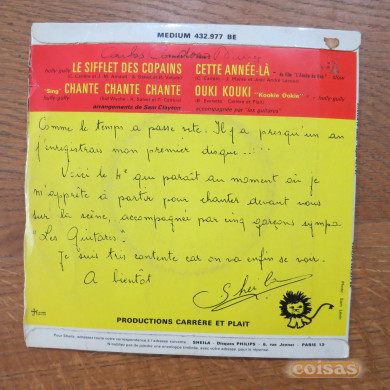 MEDIUM 432.977 BE
LE SIFFLET DES COPAINS
hully gully
CETTE ANNÉE-LÀ
du film "L'Année du Bac" slow
"Sing" CHANTE CHANTE CHANTE
hully gully
arrangements de Sam Clayton
OUKI KOUKI "Kookie Ookie"
accompagnée par "les guitares"
Comme le temps a passé vite. Il y a presqu'un an
j'enregistrais mon premier disque.....
Voici le 4e qui paraît au moment où je
m'apprête à partir pour chanter devant vous
sur la scène, accompagnée par cinq garçons sympa
"Les Guitares".
Je suis très contente car on va enfin se voir.
A bientôt
Sheila
PRODUCTIONS CARRÈRE ET PLAIT
SHEILA - Disques PHILIPS - 6, rue Jenner - PARIS 13
coisas